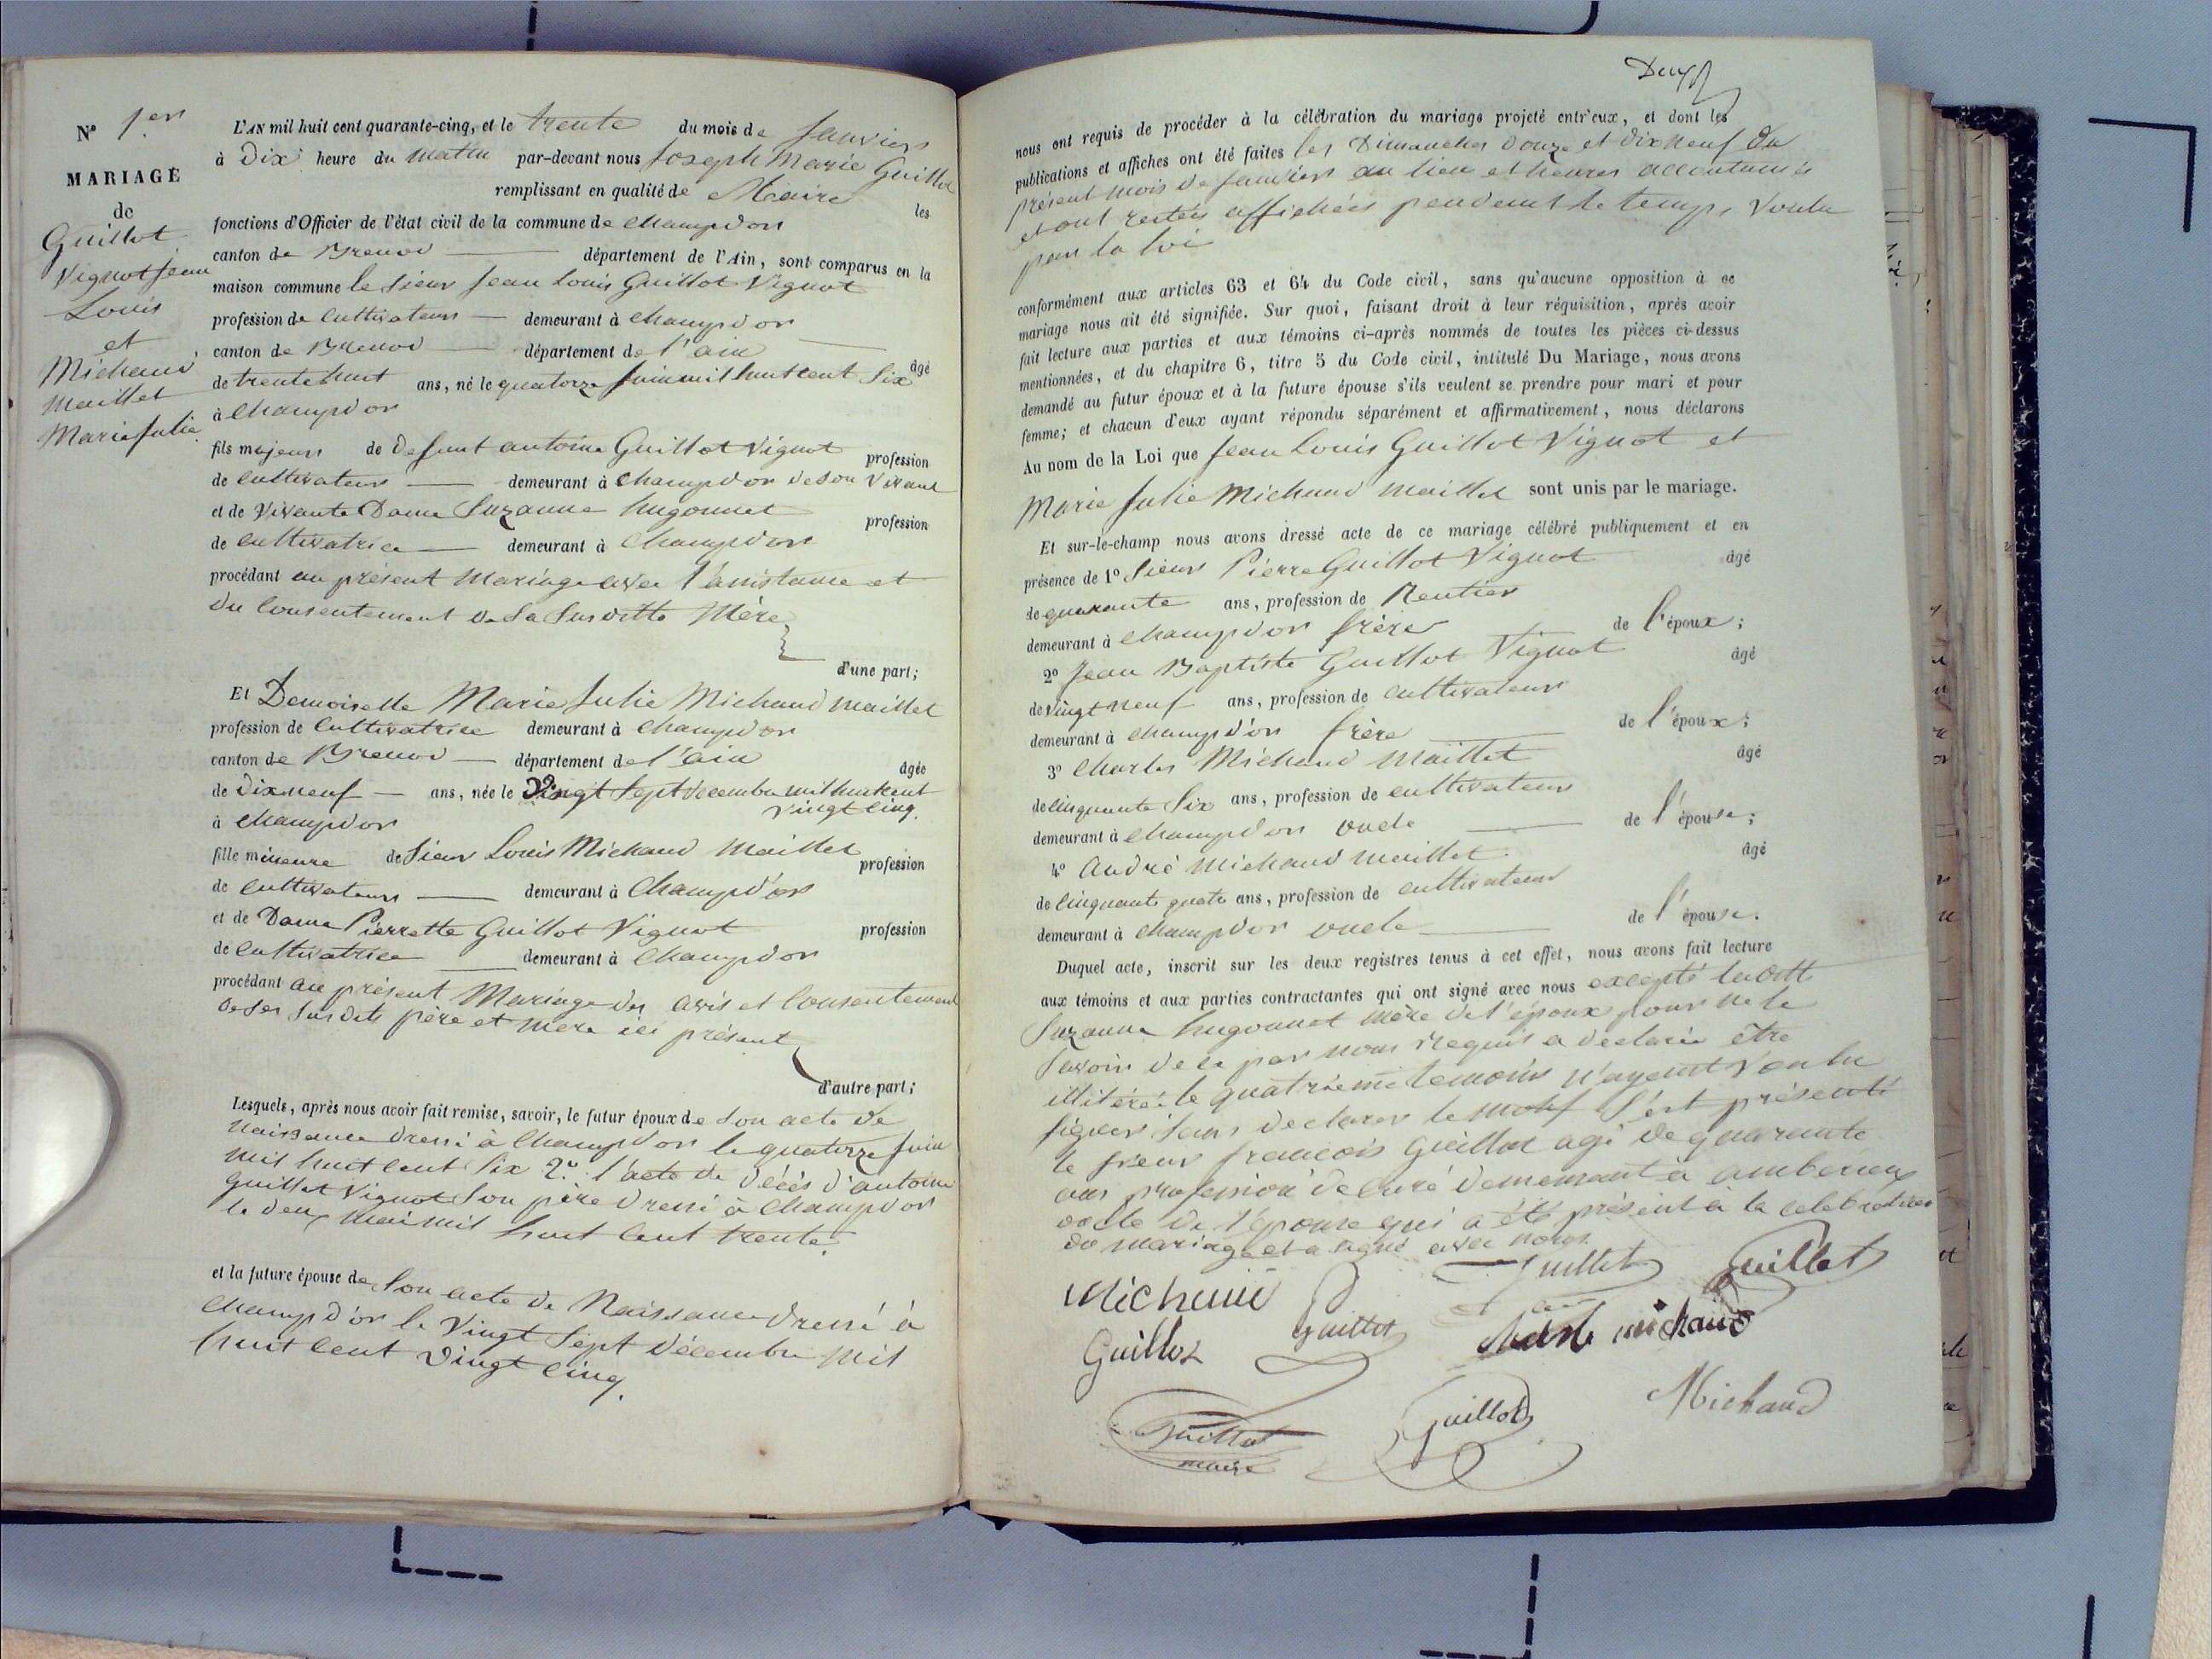 N° 1er
MARIAGE
de
Guillot
Vignot Jean
Louis
et
Michaud
Maillet
Marie Julie
L'AN mil huit cent quarante-cinq, et le trente du mois de Janvier
à Dix heure du matin par-devant nous Joseph Marie Guillot
remplissant en qualité de Maire les
fonctions d'Officier de l'état civil de la commune de champdor
canton de Brenod département de l'Ain, sont comparus en la
maison commune le Sieur Jean Louis Guillot Vignot
profession de Cultivateur demeurant à champdor
canton de Brenod département de l'ain âgé
de trente huit ans, né le quatorze Juin mil huit cent Six
à Champdor
fils majeur de defunt antoine Guillot Vignot profession
de Cultivateur demeurant à Champdor de son Vivant
et de Vivante Dame Suzanne hugonnet profession
de cultivatrice demeurant à Champdor
procédant au présent Mariage avec l'assistance et
du Consentement de Sa Susditte Mère
d'une part;
Et Demoiselle Marie Julie Michaud Maillet
profession de Cultivatrice demeurant à Champdor
canton de Brenod département de l'ain âgée
de Dix neuf ans, née le Vingt Sept décembre mil huit cent
vingt cinq.
à Champdor
fille mineure de Sieur Louis Michaud Maillet profession
de Cultivateur demeurant à Champd'or
et de Dame Pierrette Guillot Vignot profession
de Cultivatrice demeurant à Champdor
procédant au présent Mariage des avis et Consentement
de Ses Susdits père et mère ici présent
d'autre part;
Lesquels, après nous avoir fait remise, savoir, le futur époux de Son acte de
Naissance dressé à Champdor le quatorze Juin
mil huit Cent Six 2° l'acte de décès d'antoine
guillot Vignot Son père dressé à Champdor
le deux Mai mil huit Cent trente.
et la future épouse de Son acte de Naissance dressé à
Champd'or le Vingt Sept décembre mil
huit Cent vingt Cinq.
nous ont requis de procéder à la célébration du mariage projeté entr'eux, et dont les
publications et affiches ont été faites les Dimanches douze et dix neuf du
présent mois de Janvier au lieu et heures accoutumés
et ont restées affichées pendant le temps voulu
par la loi
conformément aux articles 63 et 64 du Code civil, sans qu'aucune opposition à ce
mariage nous ait été signifiée. Sur quoi, faisant droit à leur réquisition, après avoir
fait lecture aux parties et aux témoins ci-après nommés de toutes les pièces ci-dessus
mentionnées, et du chapitre 6, titre 5 du Code civil, intitulé Du Mariage, nous avons
demandé au futur époux et à la future épouse s'ils veulent se prendre pour mari et pour
femme; et chacun d'eux ayant répondu séparément et affirmativement, nous déclarons
Au nom de la Loi que Jean Louis Guillot Vignot et
Marie Julie Michaud Maillet sont unis par le mariage.
Et sur-le-champ nous avons dressé acte de ce mariage célébré publiquement et en
présence de 1° Sieur Pierre Guillot Vignot âgé
de quarante ans, profession de Rentier
demeurant à champdor frère de l'époux;
2° Jean Baptiste Guillot Vignot âgé
de vingt neuf ans, profession de cultivateur
demeurant à champd'or frère de l'époux;
3° Charles Michaud Maillet âgé
de cinquante Six ans, profession de cultivateur
demeurant à Champdor oncle de l'épouse;
4° André Michaud Maillet âgé
de Cinquante quatre ans, profession de cultivateur
demeurant à champdor oncle de l'épouse.
Duquel acte, inscrit sur les deux registres tenus à cet effet, nous avons fait lecture
aux témoins et aux parties contractantes qui ont signé avec nous excepté laditte
Suzanne hugonnet mère de l'époux pour ne le
Savoir de ce par nous requis a déclaré être
illitéré: le quatrième témoins n'ayant voulu
signer Sans declarer le motif S'est présenté
le Sieur francois Guillot agé de quarante
ans profession de Curé demeurant à amberieux
oncle de l'épouse qui a été présent à la celebration
du mariage et a signé avec nous
Michaud
Guillet
Guillot
Guillot
Guillot
michaud
Guillot
maire
Guillot
Michaud